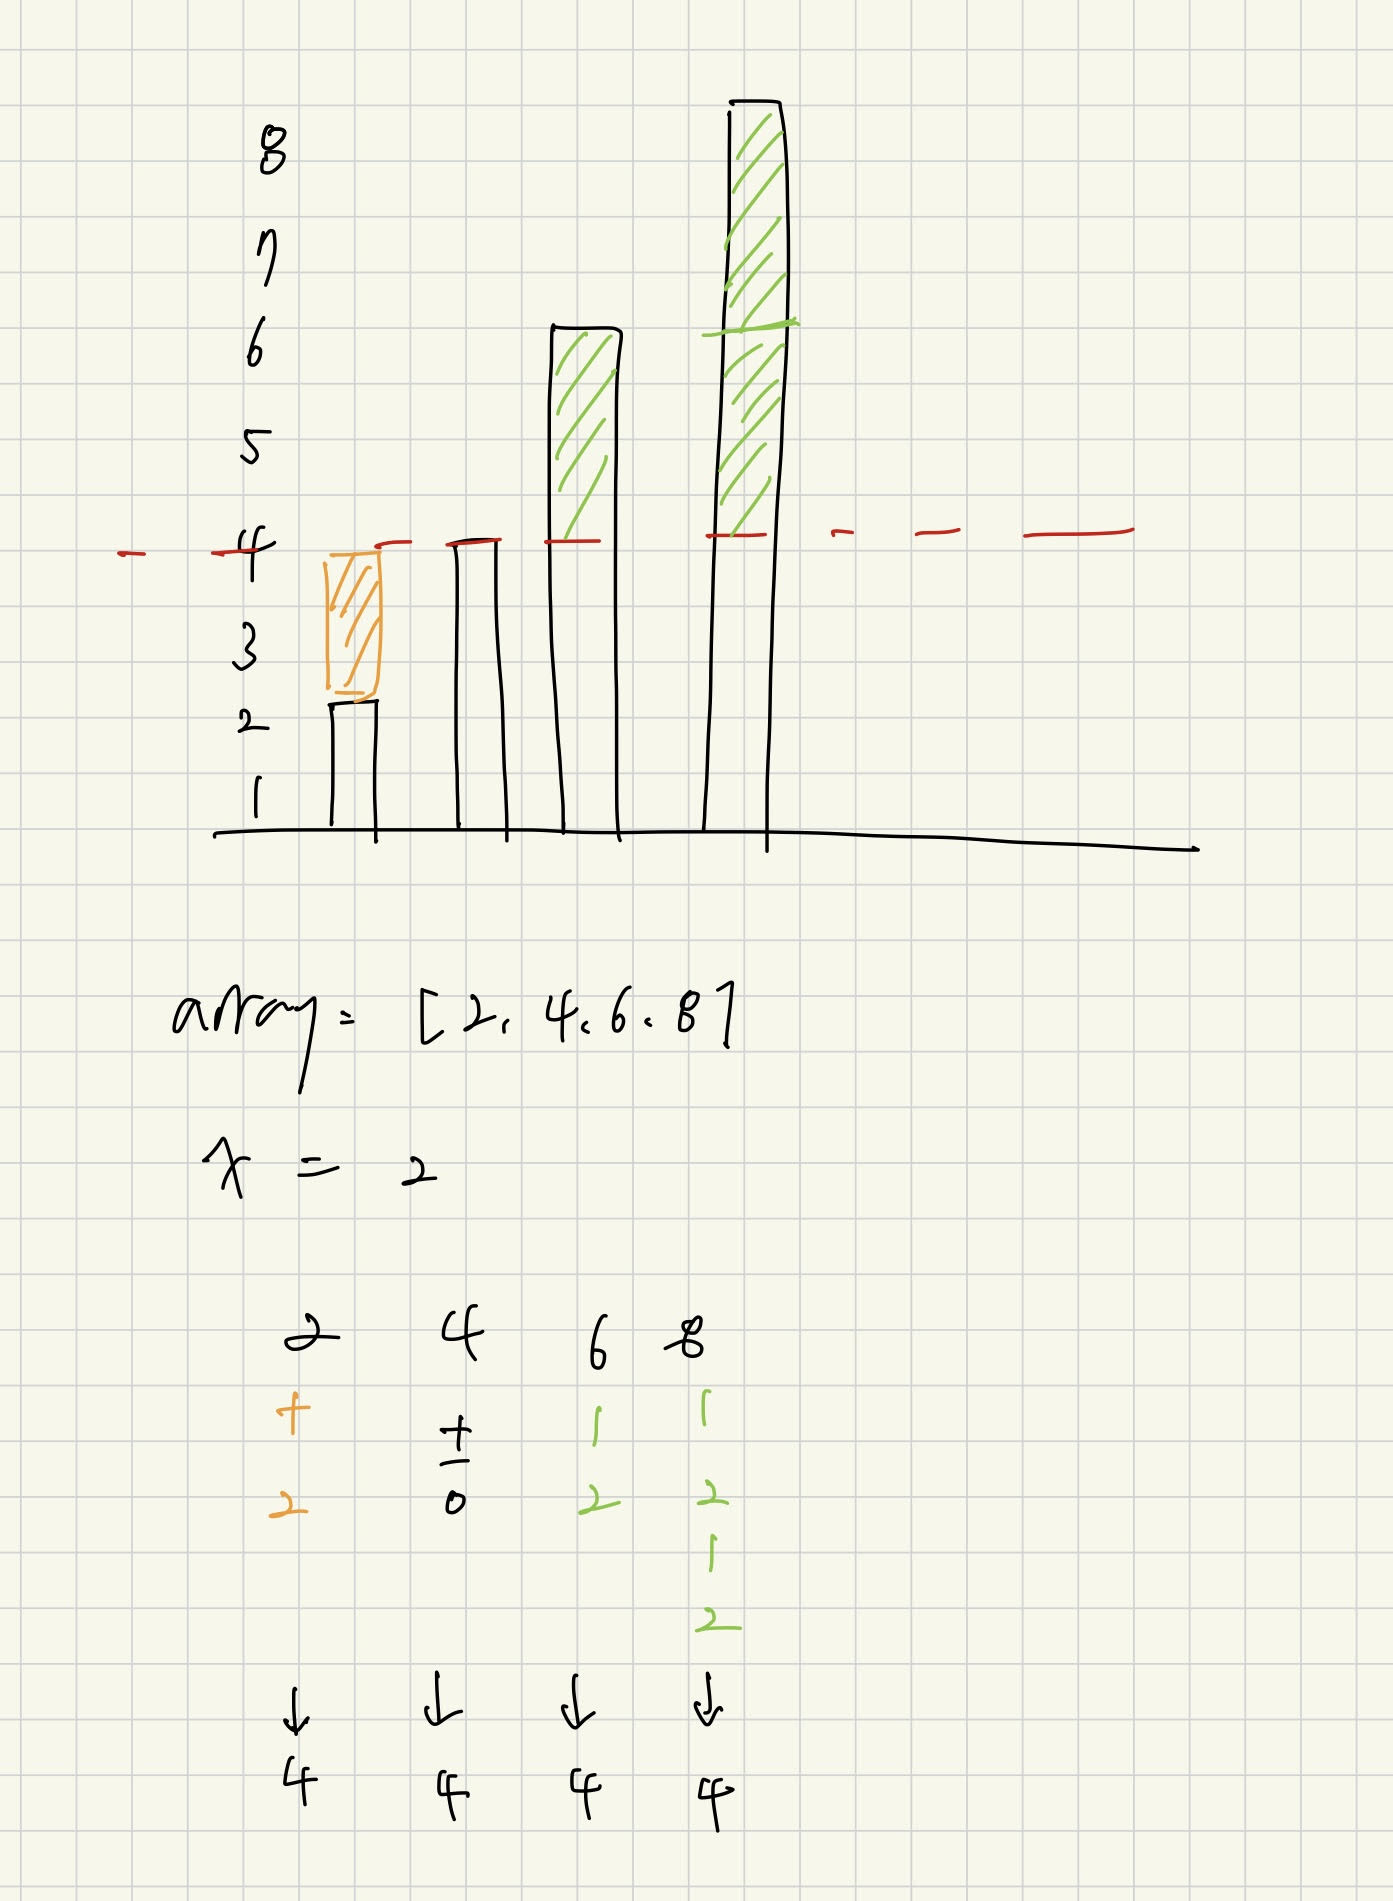 8
7
6
5
4
3
2
1
array = [2, 4, 6, 8]
x = 2
2 4 6 8
+ ± | |
2 0 2 2
|
2
↓ ↓ ↓ ↓
4 4 4 4